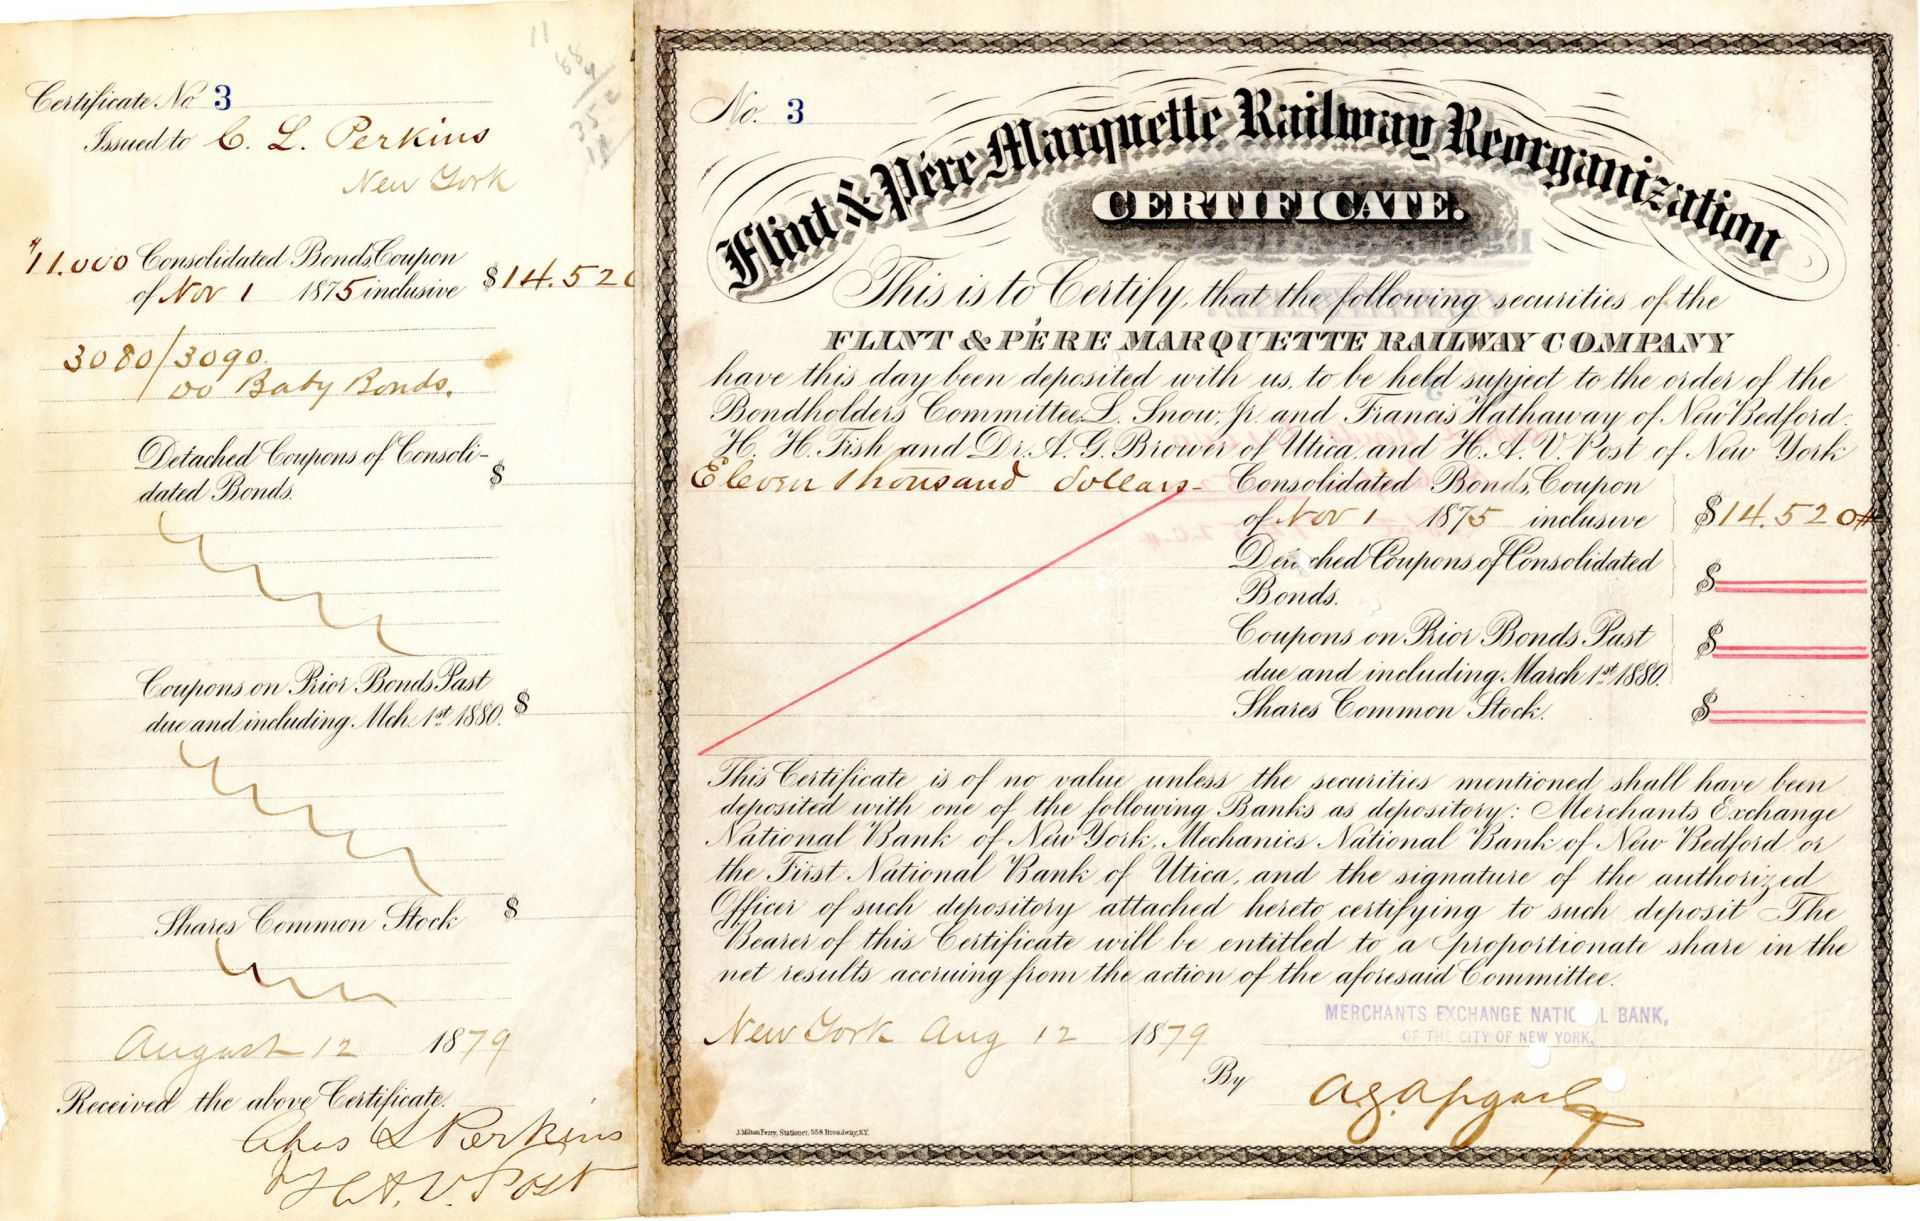 Certificate No. 3
Issued to C. L. Perkins
New York
$11.000 Consolidated Bonds, Coupon
of Nov 1 1875 inclusive $14.520
3080/3090
00 Baby Bonds.
Detached Coupons of Consoli-
dated Bonds. $
Coupons on Prior Bonds Past
due and including Mch. 1st 1880. $
Shares Common Stock $
August 12 1879
Received the above Certificate.
Chas L Perkins
H.A.V. Post
11
352
No. 3
Flint & Père Marquette Railway Reorganization
CERTIFICATE.
This is to Certify, that the following securities of the
FLINT & PÈRE MARQUETTE RAILWAY COMPANY
have this day been deposited with us, to be held subject to the order of the
Bondholders Committee, L. Snow, Jr. and Francis Hathaway of New Bedford.
H. H. Fish and Dr. A. G. Brower of Utica, and H. A. V. Post of New York
Eleven Thousand dollars- Consolidated Bonds, Coupon
of Nov 1 1875 inclusive $14.520#
Detached Coupons of Consolidated
Bonds. $
Coupons on Prior Bonds Past
due and including March 1st 1880. $
Shares Common Stock. $
This Certificate is of no value unless the securities mentioned shall have been
deposited with one of the following Banks as depository: Merchants Exchange
National Bank of New York, Mechanics National Bank of New Bedford or
the First National Bank of Utica, and the signature of the authorized
Officer of such depository attached hereto certifying to such deposit - The
Bearer of this Certificate will be entitled to a proportionate share in the
net results accruing from the action of the aforesaid Committee.
New York Aug 12 1879
MERCHANTS EXCHANGE NATIONAL BANK,
OF THE CITY OF NEW YORK.
By A.S. Apgar
J. Milton Ferry, Stationer, 558 Broadway, N.Y.